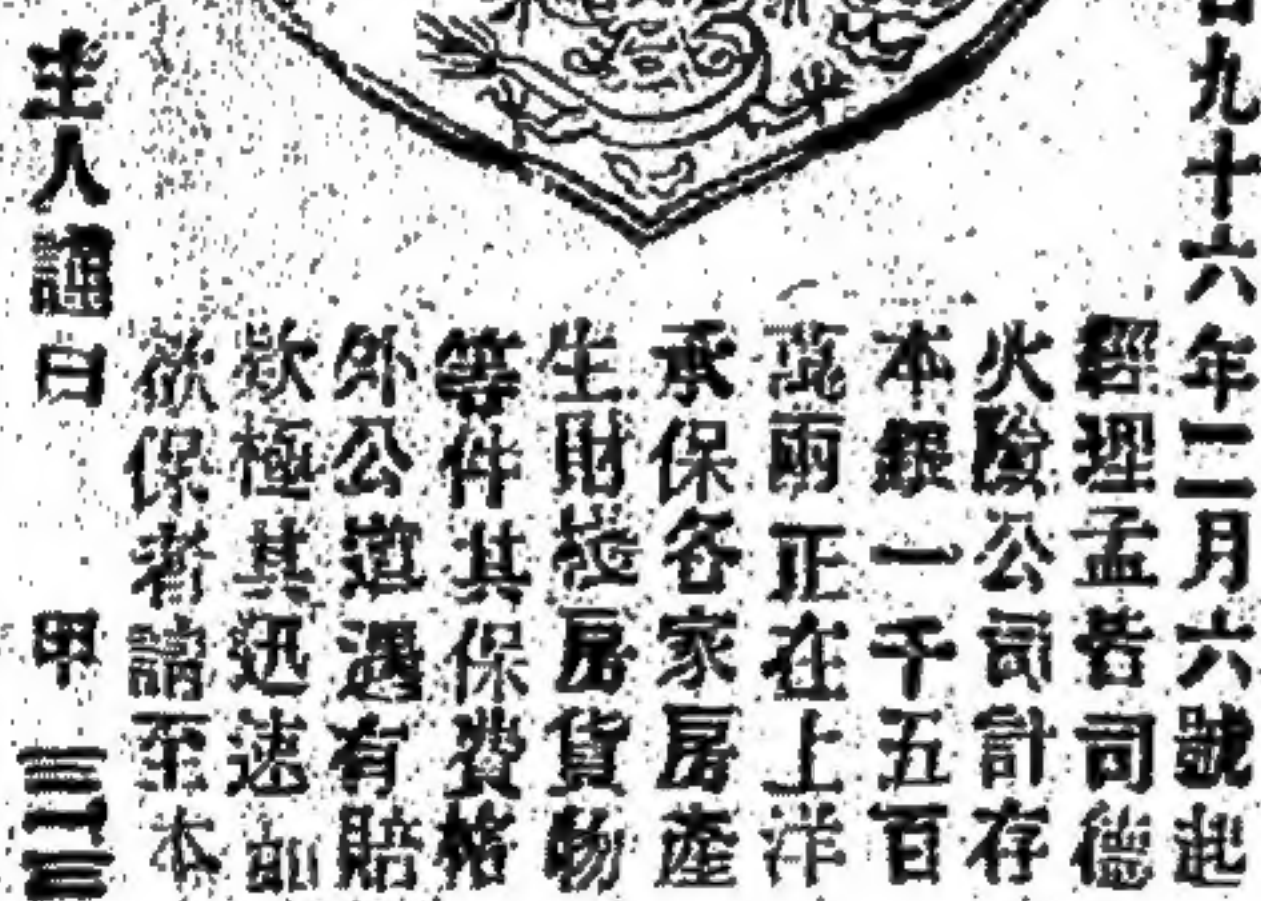 九十六年二月六號起
經理孟眥司德
火險公司計存
本銀一千五百
萬兩正在上洋
承保各家房產
生財棧房貨物
等件其保費格
外公道遇有賠
欵極其迅速如
欲保者請至本
主人謹白 甲 三一三